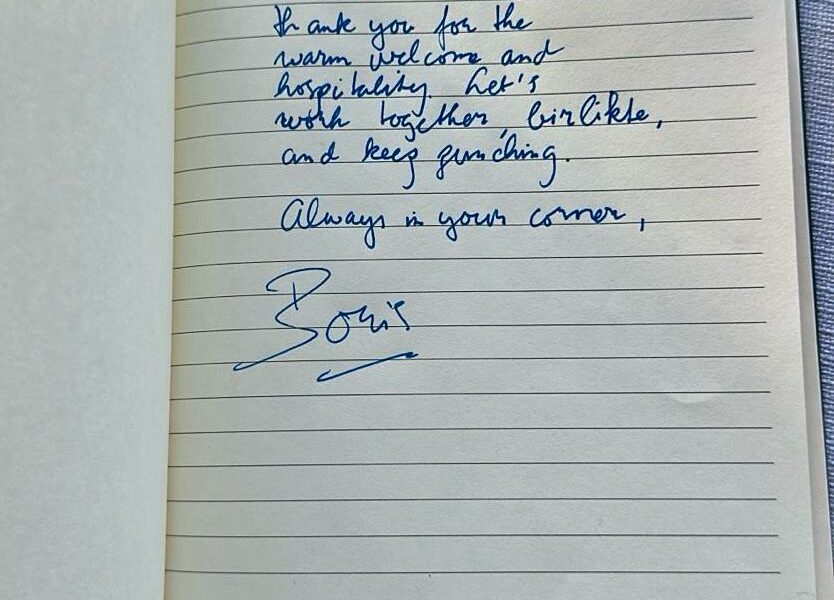 thank you for the
warm welcome and
hospitality. Let's
work together, birlikte,
and keep punching.
Always in your corner,
Boris